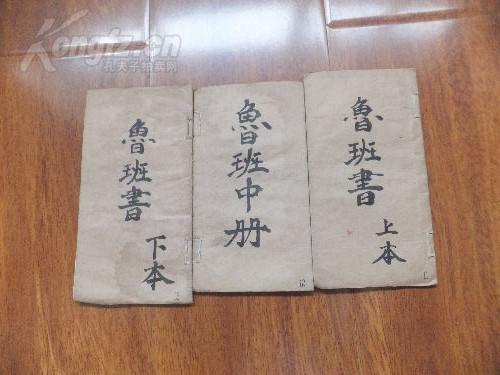 Kongfz.cn
孔夫子拍卖网
魯班書
上本
魯班中册
魯班書
下本